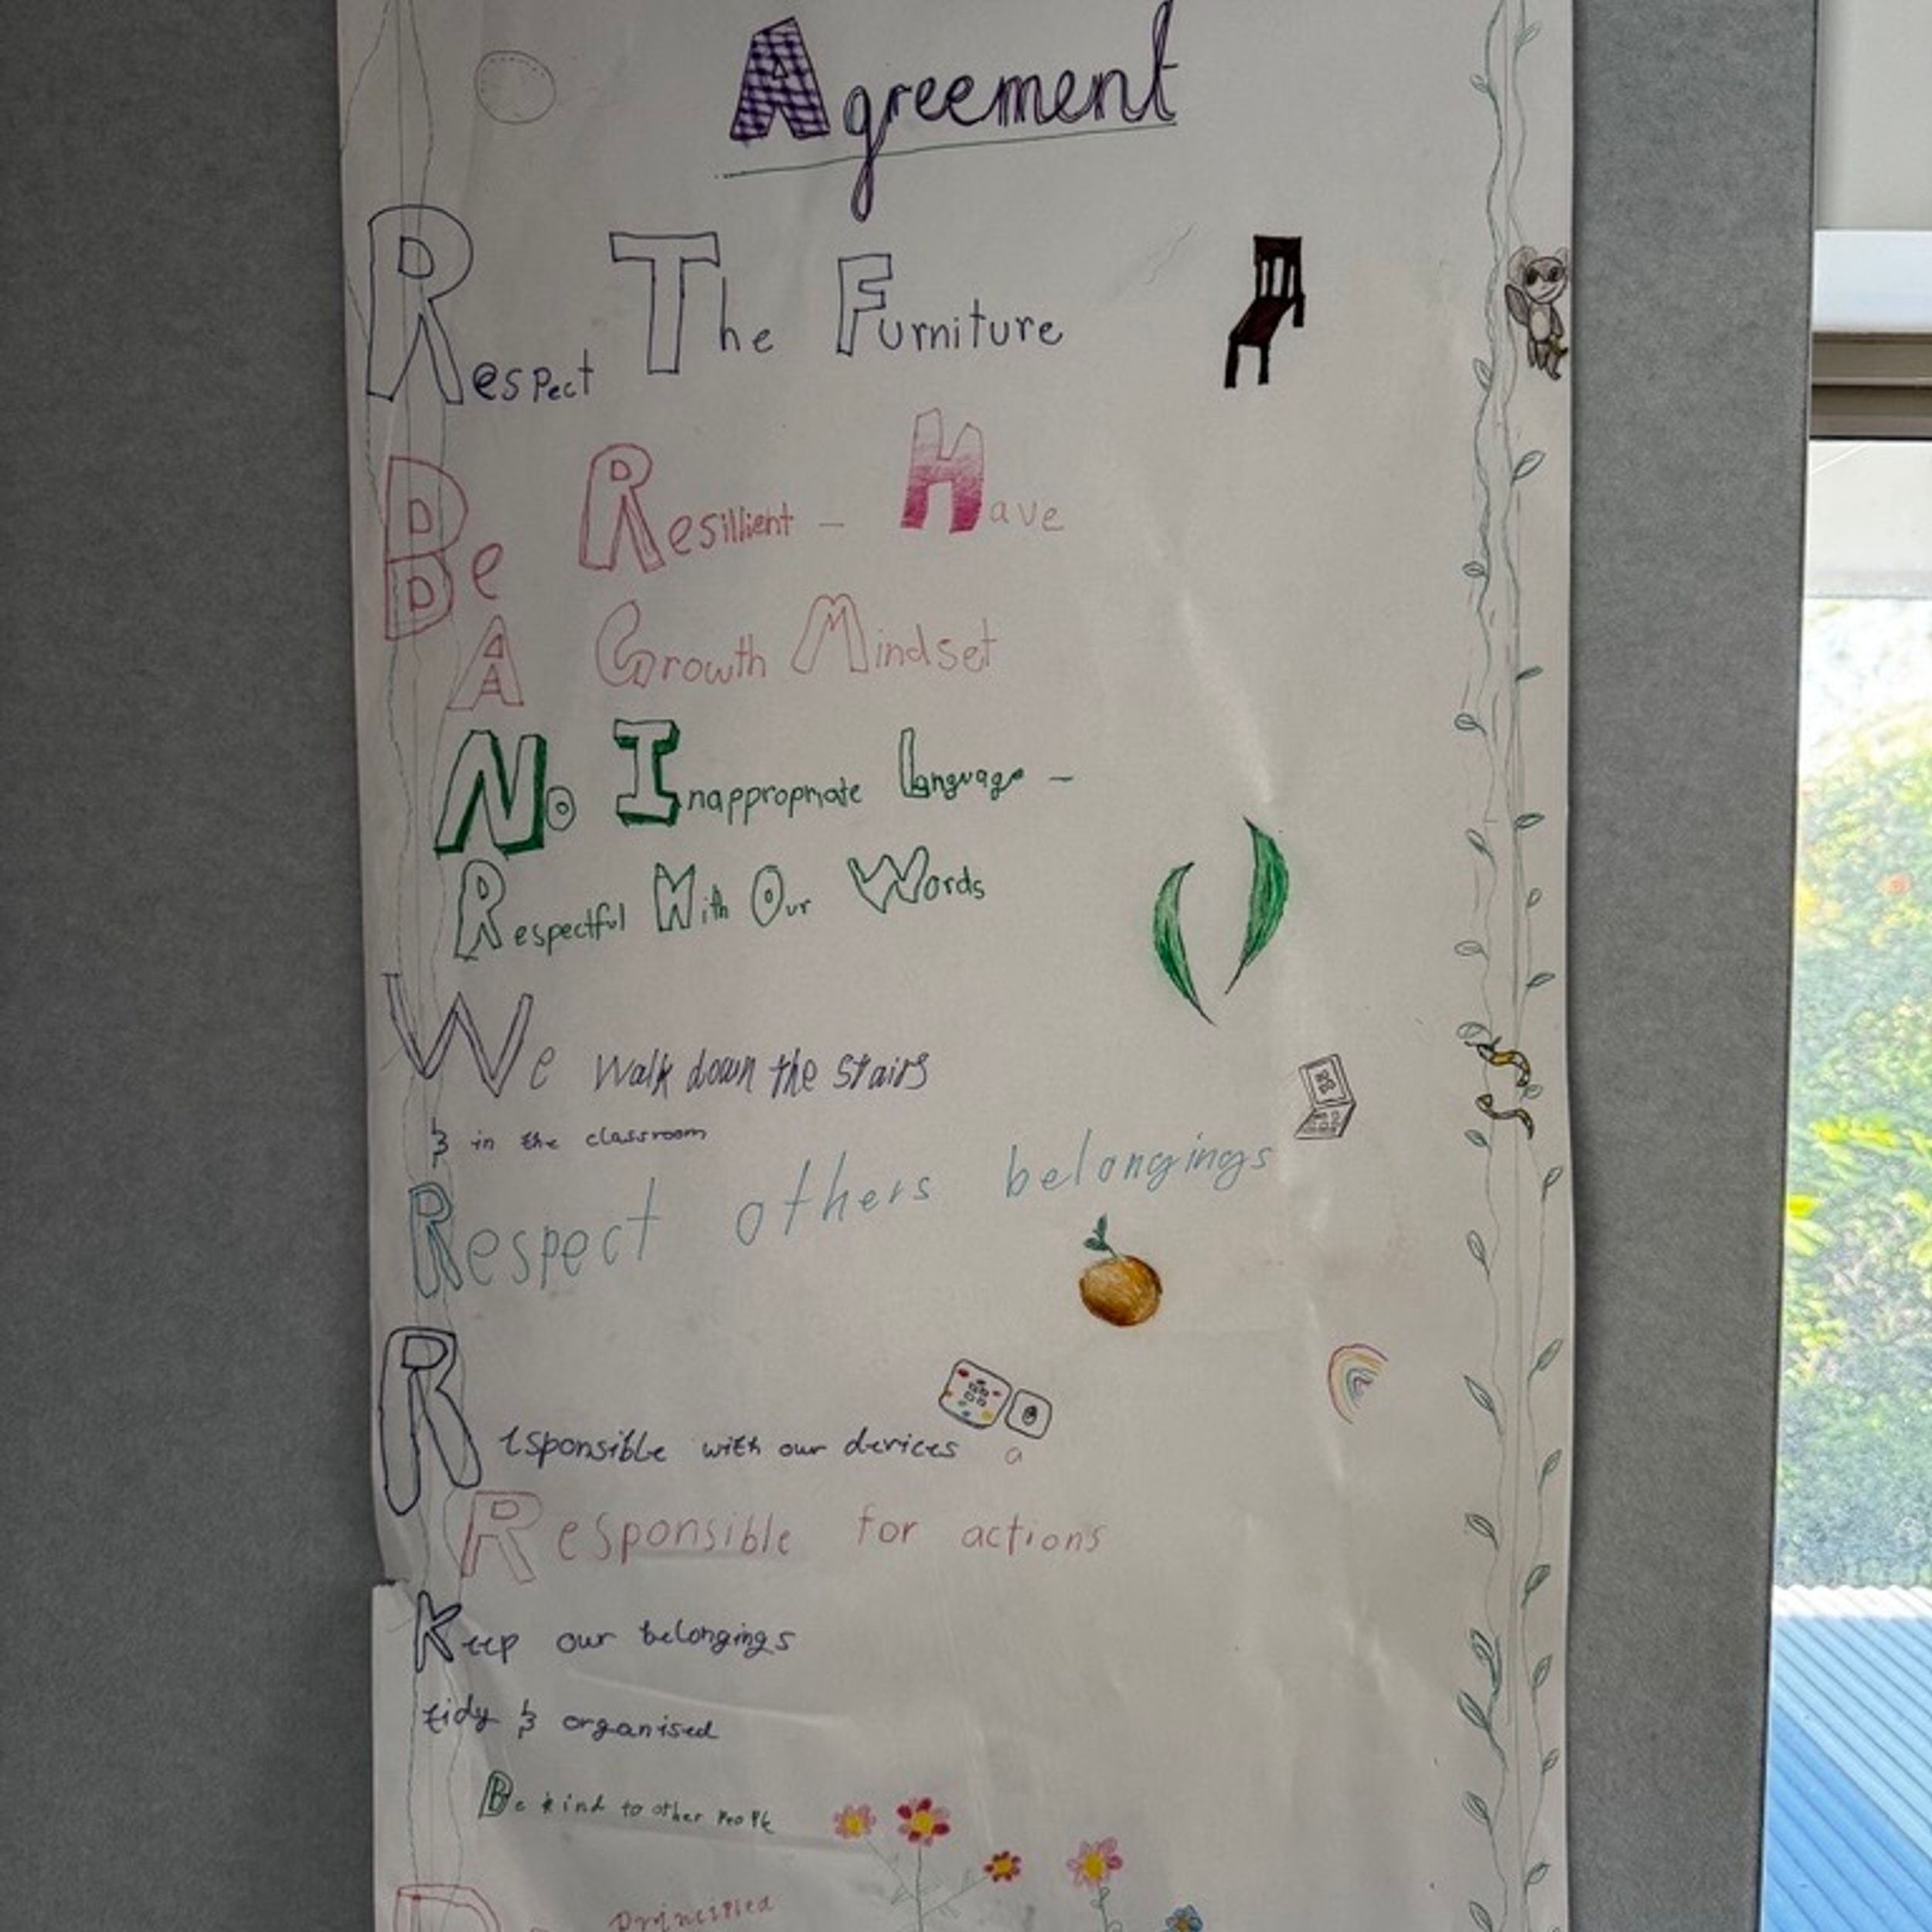 Agreement
Respect The Furniture
Be Resillient - Have
A Growth Mindset
No Inappropriate Language -
Respectful With Our Words
We walk down the stairs
& in the classroom
Respect others belongings
Responsible with our devices a
Responsible for actions
Keep our belongings
tidy & organised
Be kind to other people
principled